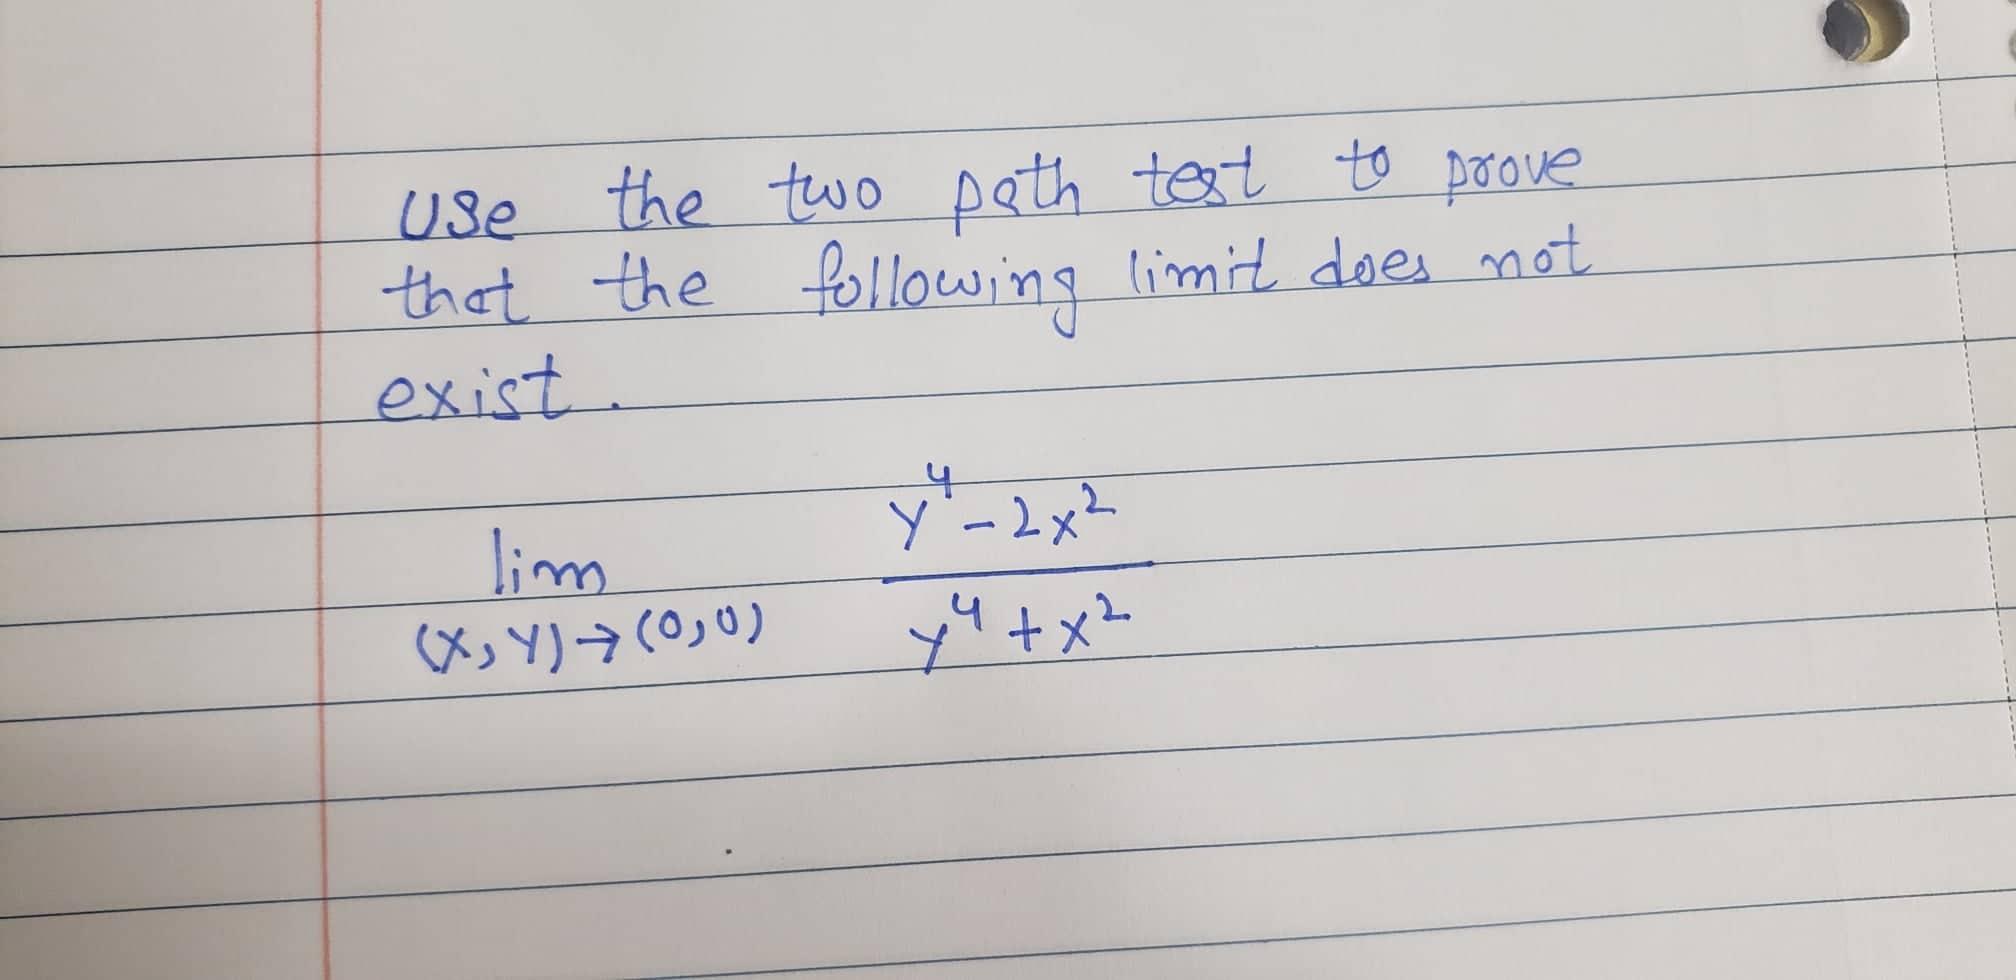 Use the two path test to prove
that the following limit does not
exist.
lim (x,y)→(0,0) y⁴-2x² / y⁴+x²